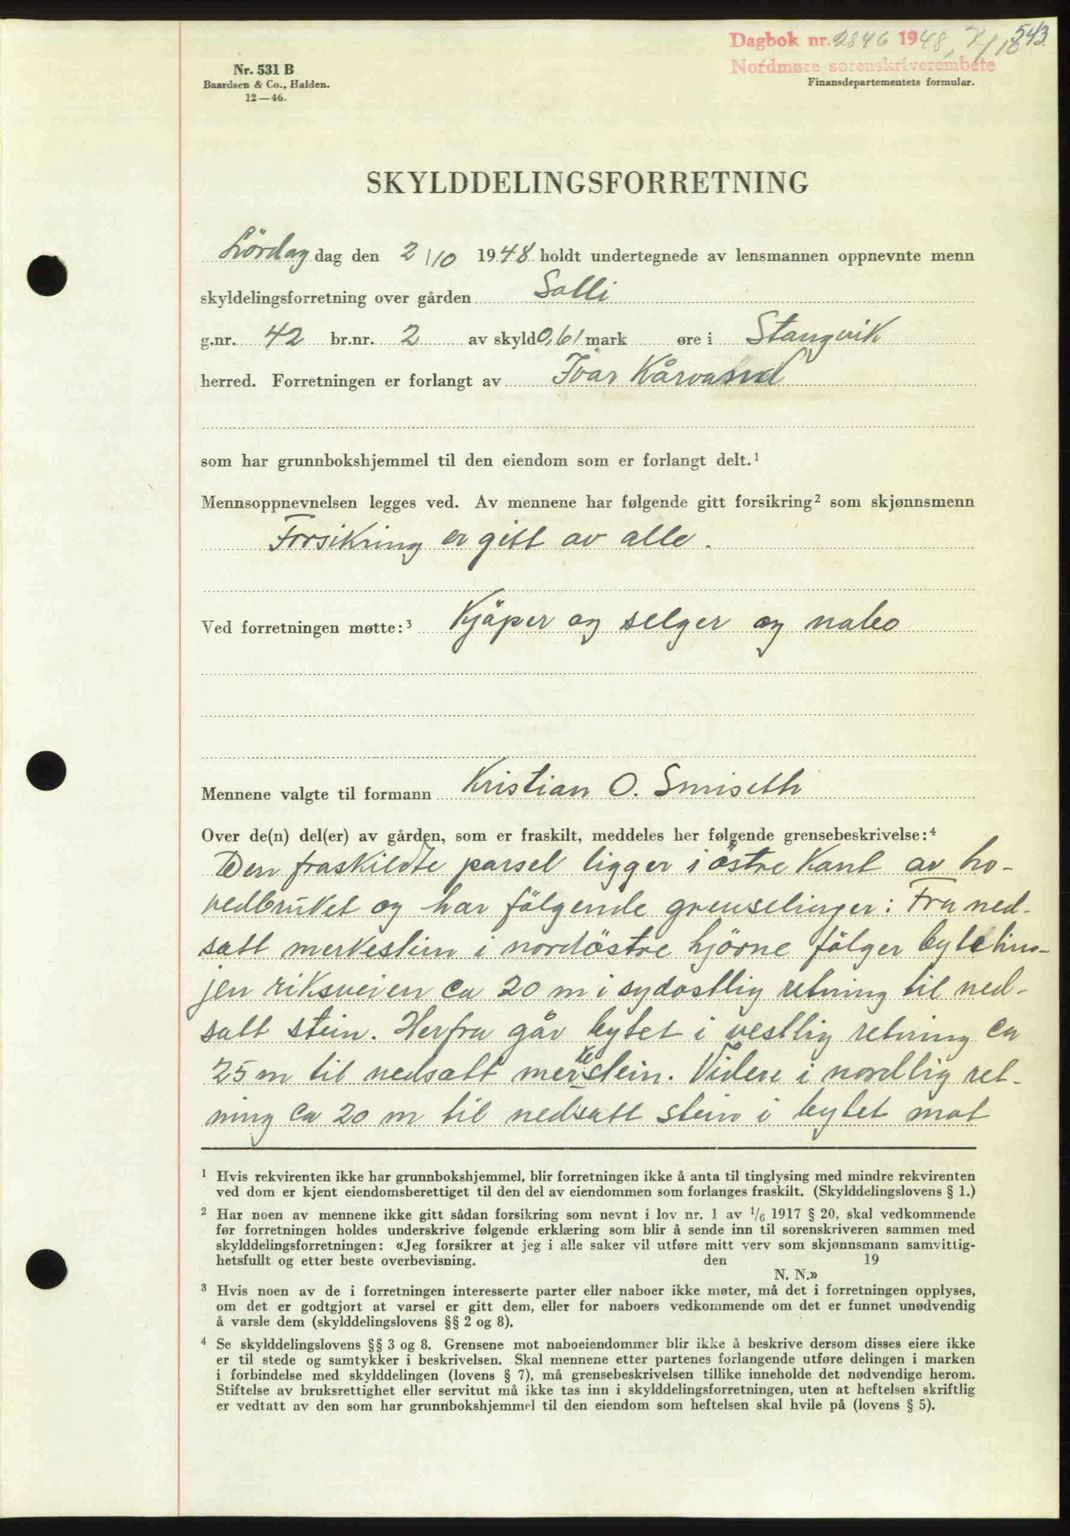 Dagbok nr. 2846 1948, 7/10 543
Nordmøre sorenskriverembete
Nr. 531 B
Baardsen & Co., Halden.
12—46.
Finansdepartementets formular.
SKYLDDELINGSFORRETNING
Lördag dag den 2/10 1948 holdt undertegnede av lensmannen oppnevnte menn
skyldelingsforretning over gården Solli
g.nr. 42 br.nr. 2 av skyld 0,61 mark øre i Stangvik
herred. Forretningen er forlangt av Ivar Kårvand
som har grunnbokshjemmel til den eiendom som er forlangt delt.¹
Mennsoppnevnelsen legges ved. Av mennene har følgende gitt forsikring² som skjønnsmenn
Forsikring er gitt av alle.
Ved forretningen møtte:³ Kjöper og selger og nabo
Mennene valgte til formann Kristian O. Smiseth
Over de(n) del(er) av gården, som er fraskilt, meddeles her følgende grensebeskrivelse:⁴
Den fraskildte parsel ligger i östre kant av ho-
vedbruket og har fölgende grenselinjer: Fra ned-
satt merkestein i nordöstre hjörne fölger bytelin-
jen riksveien ca 20 m i sydostlig retning til ned-
satt stein. Herfra går bytet i vestlig retning ca
25 m til nedsatt merkestein. Videre i nordlig ret-
ning ca 20 m til nedsatt stein i bytet mot
¹ Hvis rekvirenten ikke har grunnbokshjemmel, blir forretningen ikke å anta til tinglysing med mindre rekvirenten
ved dom er kjent eiendomsberettiget til den del av eiendommen som forlanges fraskilt. (Skylddelingslovens § 1.)
² Har noen av mennene ikke gitt sådan forsikring som nevnt i lov nr. 1 av 1/6 1917 § 20, skal vedkommende
før forretningen holdes underskrive følgende erklæring som blir å sende inn til sorenskriveren sammen med
skylddelingsforretningen: «Jeg forsikrer at jeg i alle saker vil utføre mitt verv som skjønnsmann samvittig-
hetsfullt og etter beste overbevisning. den 19
N. N.»
³ Hvis noen av de i forretningen interesserte parter eller naboer ikke møter, må det i forretningen opplyses,
om det er godtgjort at varsel er gitt dem, eller for naboers vedkommende om det er funnet unødvendig
å varsle dem (skylddelingslovens §§ 2 og 8).
⁴ Se skylddelingslovens §§ 3 og 8. Grensene mot naboeiendommer blir ikke å beskrive dersom disses eiere ikke
er til stede og samtykker i beskrivelsen. Skal mennene etter partenes forlangende utføre delingen i marken
i forbindelse med skylddelingen (lovens § 7), må grensebeskrivelsen tillike inneholde det nødvendige herom.
Stiftelse av bruksrettighet eller servitut må ikke tas inn i skylddelingsforretningen, uten at heftelsen skriftlig
er vedtatt av den som har grunnbokshjemmel til den eiendom som heftelsen skal hvile på (lovens § 5).